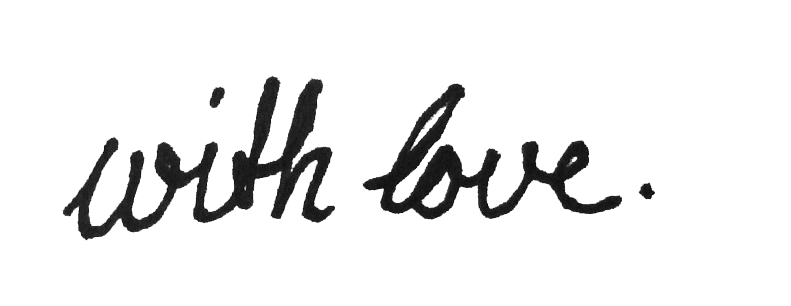 with love.